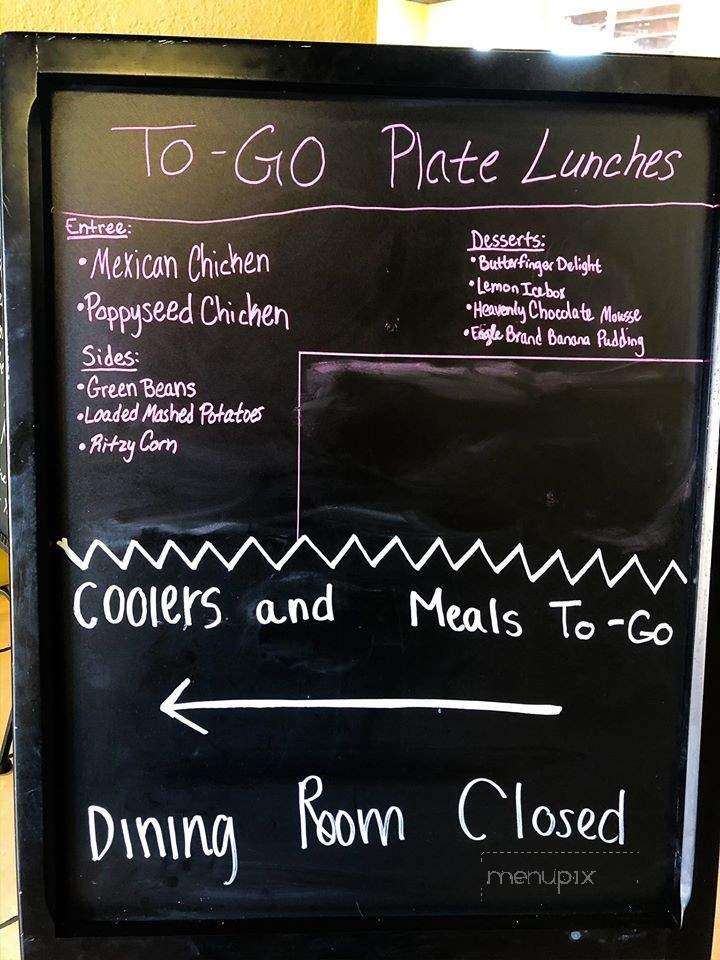 To-Go Plate Lunches
Entree:
• Mexican Chicken
• Poppyseed Chicken
Sides:
• Green Beans
• Loaded Mashed Potatoes
• Ritzy Corn
Desserts:
• Butterfinger Delight
• Lemon Icebox
• Heavenly Chocolate Mousse
• Eagle Brand Banana Pudding
Coolers and Meals To-Go
Dining Room Closed
menupix